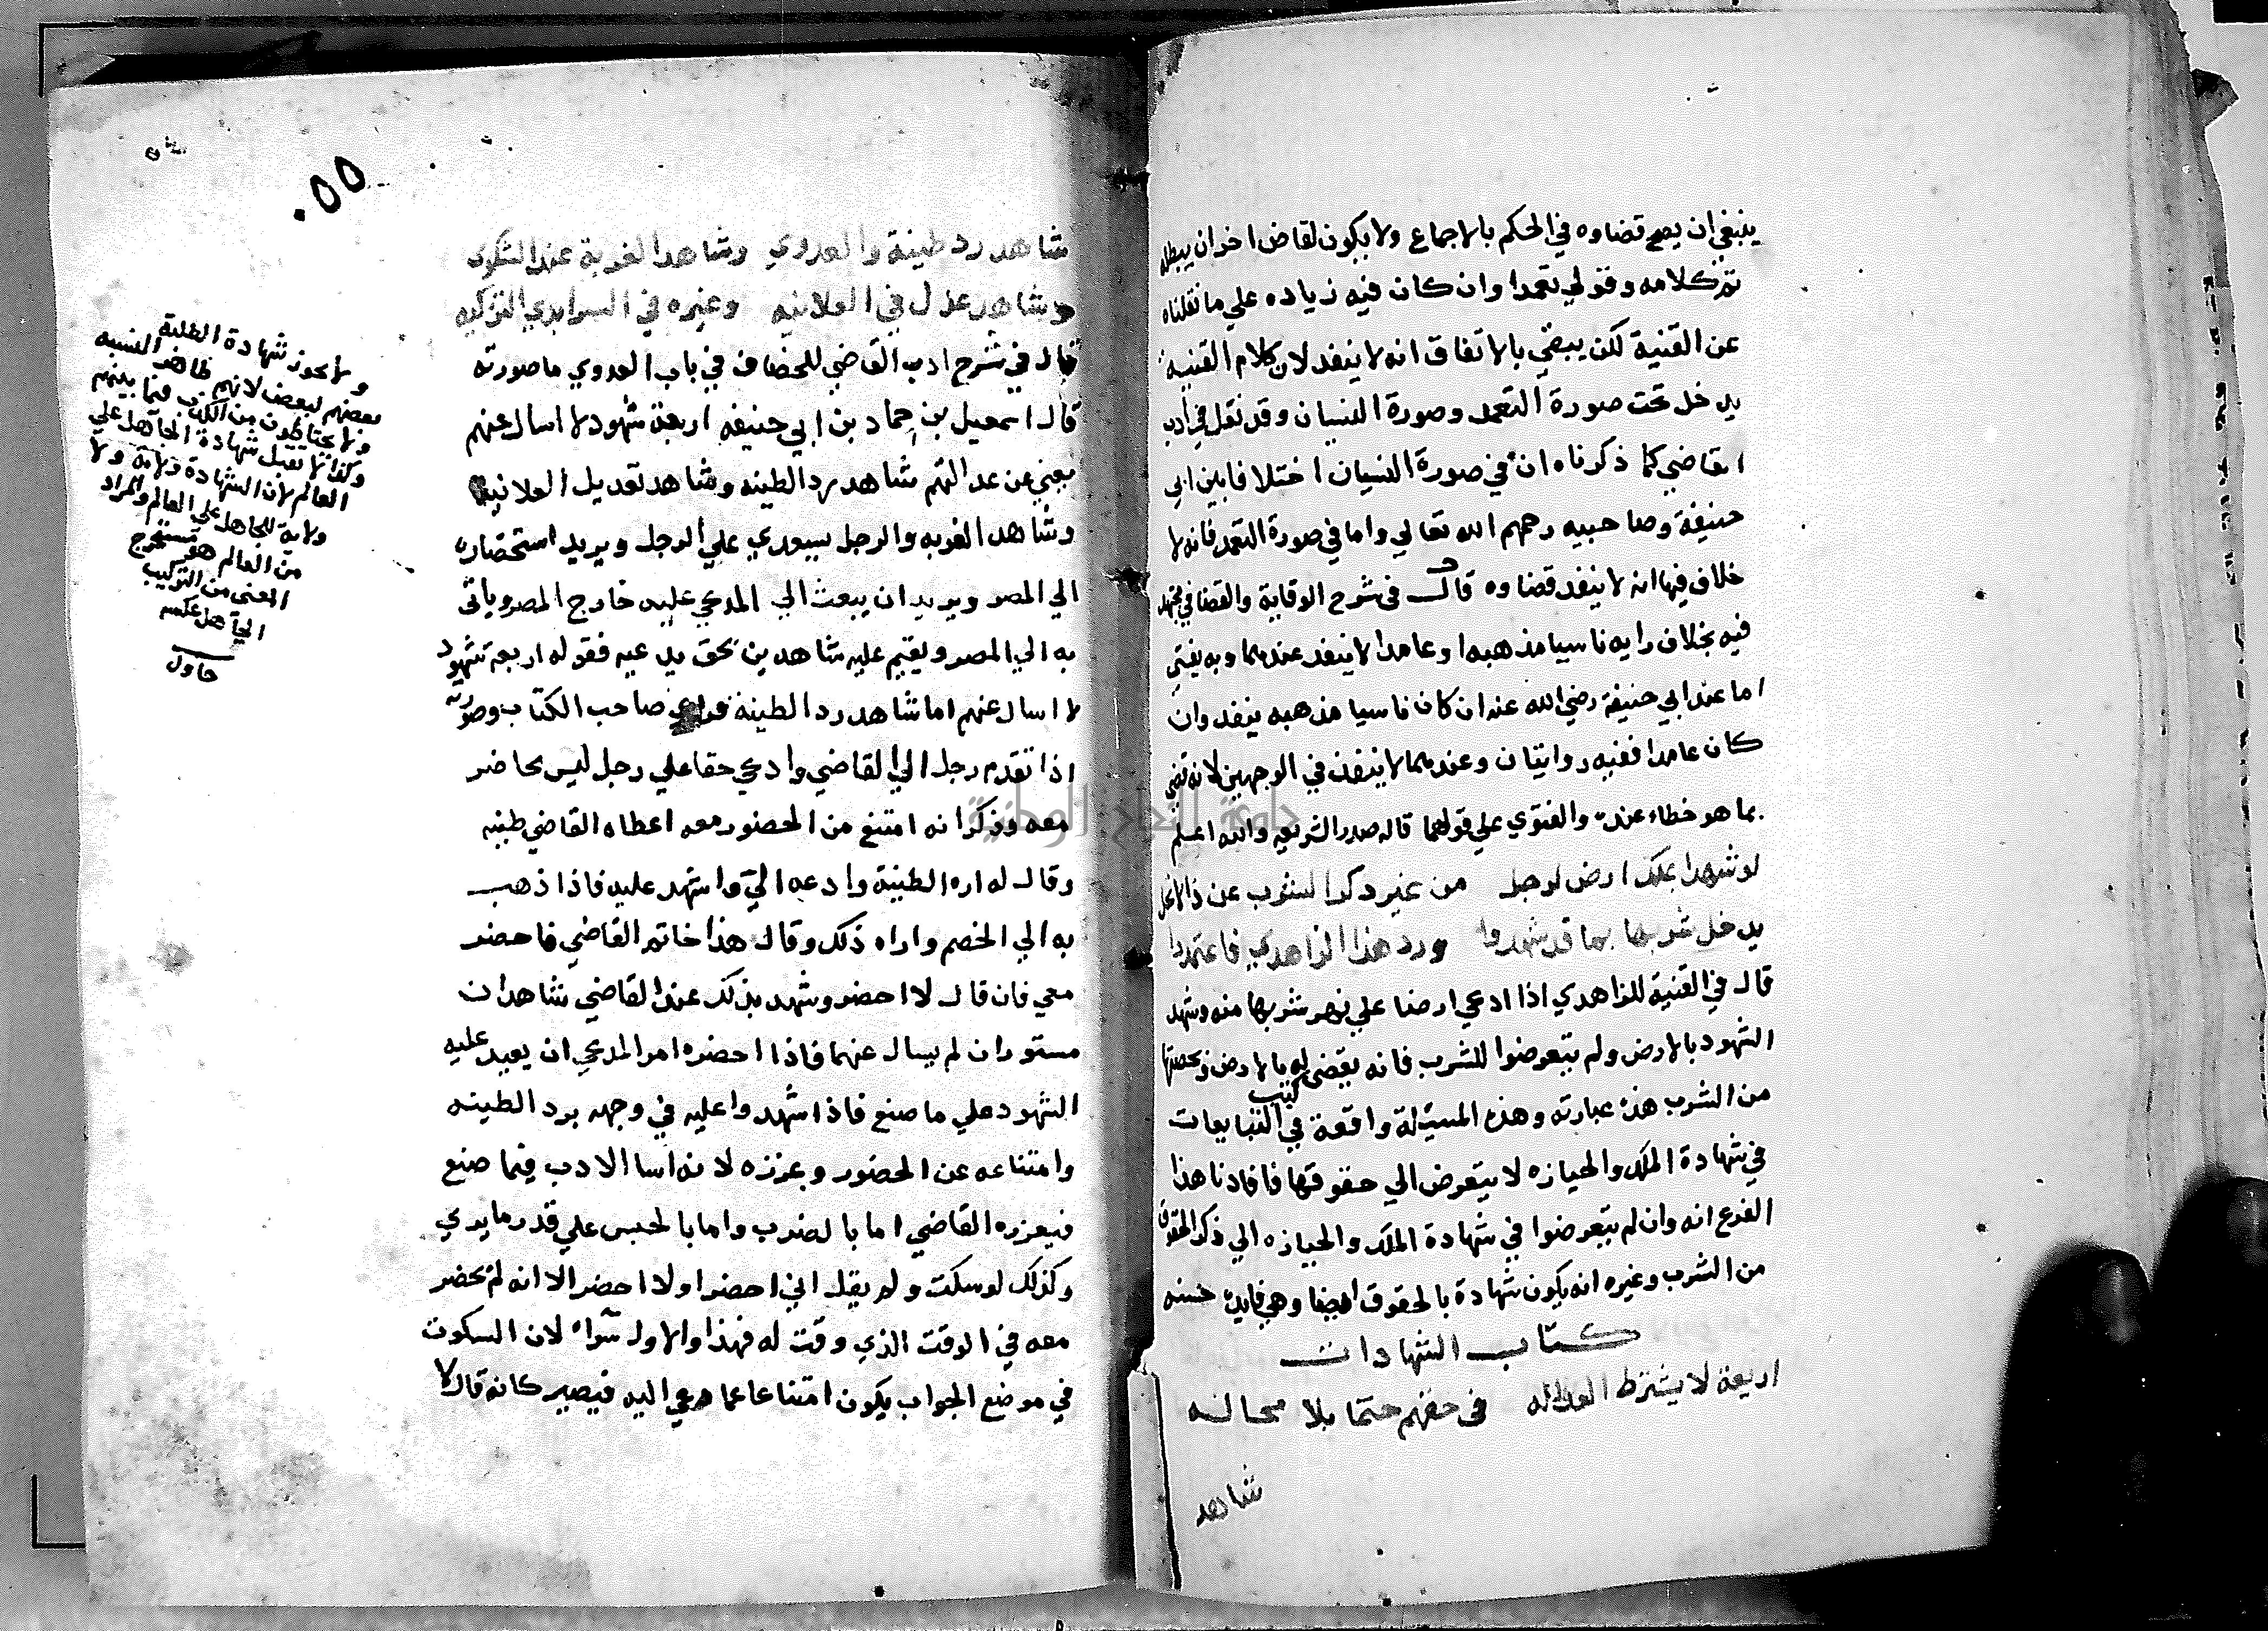 ينبغي ان يصح قضاوه في الحكم بالاجماع ولا يكون لقاض اخر ان يبطله
تم كلامه وقولي تعمدا وان كان فيه زياده علي ما نقلناه
عن القنية لكن يبقي بالاتفاق انه لا ينفد لان كلام القنية
يدخل تحت صورة التعمد وصورة النسيان وقد نقل في ادب
القاضي كما ذكرناه ان في صورة النسيان اختلافا بين ابي
حنيفة وصاحبيه رحمهم الله تعالي واما في صورة التعمد فانه لا
خلاف فيها انه لا ينفد قضاوه قال في شرح الوقاية والقضا في مجتهد
فيه بخلاف رايه ناسيا مذهبه او عامدا لا ينفد عندهما وبه يفتي
اما عند ابي حنيفة رضي الله عنه ان كان ناسيا مذهبه ينفد وان
كان عامدا ففيه روايتان وعندهما لا ينفد في الوجهين لانه قضي
بما هو خطاء عنده والفتوي علي قولهما قاله صدر الشريعه والله اعلم
لو شهدا بملك ارض لرجل من غير دكرا لشرب عن ذا
يدخل شربها بما قد شهدوا ورد هذا الزاهدي فاعتمدوا
قال في القنية للزاهدي اذا ادعي ارضا علي نهر شربها منه وشهد
الشهود بالارض ولم يتعرضوا للشرب فانه يقضي له بالارض وبحصتها
من الشرب هذه عبارته وهذه المسئلة واقعة في التبايعات
كتب
في شهادة الملك والحيازه لا يتعرض الي حقوقها فافادنا هذا
الفرع انه وان لم يتعرضوا في شهادة الملك والحيازه الي ذكر الحقوق
من الشرب وغيره انه يكون شهادة بالحقوق ايضا وهي فايدة حسنه
كتاب الشهادات
اربعة لا يشترط العداله في حقهم حتما بلا محاله
شاهد
٥٥
شاهد رد طينة والعدوي وشاهد الغربة عند الشكوي
وشاهد عدل في العلانيه وغيره في السر ابدي التزكيه
قال في شرح ادب القاضي للخصاف في باب العدوي ما صورته
قال اسمعيل بن حماد بن ابي حنيفه اربعة شهود لا اسال عنهم
يعني عن عدالتهم شاهد رد الطينه وشاهد تعديل العلانيه
وشاهد الغربه والرجل يستعدي علي الرجل ويريد استحضاره
الي المصر ويريد ان يبعث الي المدعي عليه خارج المصر وياتي
به الي المصر ويقيم عليه شاهدين بحق يدعيه فقوله اربعة شهود
لا اسال عنهم اما شاهد رد الطينة صاحب الكتاب وصورته
اذا تقدم رجل الي القاضي وادعي حقا علي رجل ليس بحاضر
معه وذكر انه امتنع من الحضور معه اعطاه القاضي طينه
وقال له اره الطينة وادعه الي واشهد عليه فاذا ذهب
به الي الخصم واراه ذلك وقال هذا خاتم القاضي فاحضر
معي فان قال لا احضر وشهد بذلك عند القاضي شاهدان
مستوران لم يسال عنهما فاذا احضره امر المدعي ان يعيد عليه
الشهود علي ما صنع فاذا شهدوا عليه في وجهه برد الطينه
وامتناعه عن الحضور وعزره لانه اسا الادب فيما صنع
فيعزره القاضي اما بالضرب واما بالحبس علي قدر ما يري
وكذلك لو سكت ولم يقل اني احضر اولا احضر الا انه لم يحضر
معه في الوقت الذي وقت له فهذا والاول سواء لان السكوت
في موضع الجواب يكون امتناعا عما دعي اليه فيصير كانه قال لا
ولا تجوز شهادة الطلبة
بعضهم لبعض لانهم ظاهر النسبه
ولا يحتاطون من الكذب فيما بينهم
وكذا لا تقبل شهادة الجاهل علي
العالم لان الشهادة ولاية ولا
ولاية للجاهل علي العالم والمراد
من العالم هو مستخرج
المعني من التركيب
الجاهل عكسه
حاول